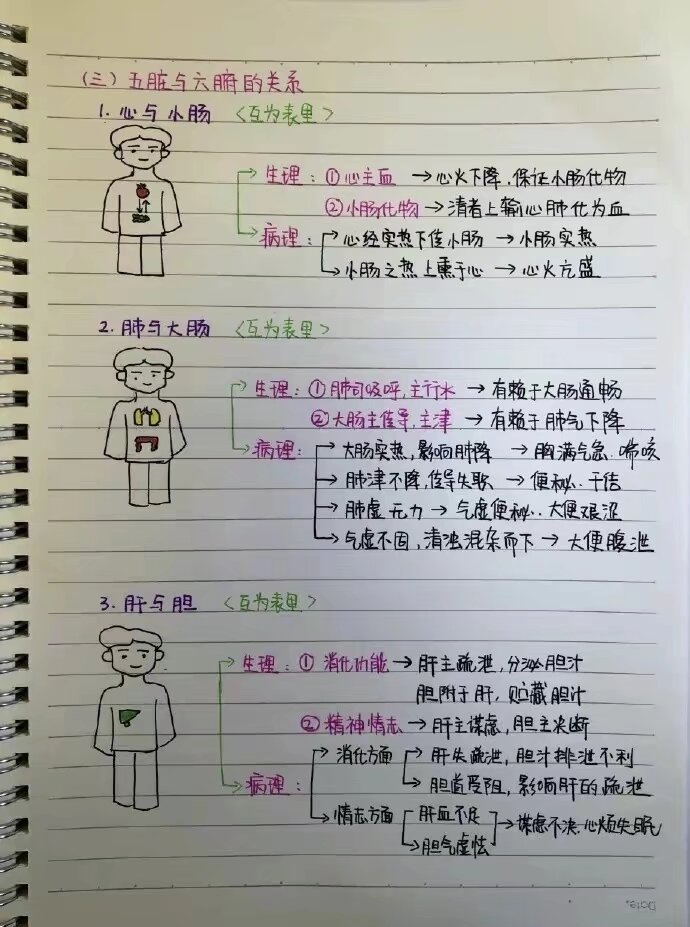 (三)五脏与六腑的关系
1. 心与小肠 <互为表里>
生理: ①心主血 → 心火下降, 保证小肠化物
②小肠化物 → 清者上输心肺化为血
病理: 心经实热下传小肠 → 小肠实热
小肠之热上熏于心 → 心火亢盛
2. 肺与大肠 <互为表里>
生理: ①肺司呼吸, 主行水 → 有赖于大肠通畅
②大肠主传导, 主津 → 有赖于肺气下降
病理: 大肠实热, 影响肺降 → 胸满气急、喘咳
肺津不降, 传导失职 → 便秘、干结
肺虚无力 → 气虚便秘、大便艰涩
气虚不固, 清浊混杂而下 → 大便腹泄
3. 肝与胆 <互为表里>
生理: ① 消化功能 → 肝主疏泄, 分泌胆汁
胆附于肝, 贮藏胆汁
② 精神情志 → 肝主谋虑, 胆主决断
病理: 消化方面 肝失疏泄, 胆汁排泄不利
胆道受阻, 影响肝的疏泄
情志方面 肝血不足 → 谋虑不决, 心烦失眠
胆气虚怯
Date.